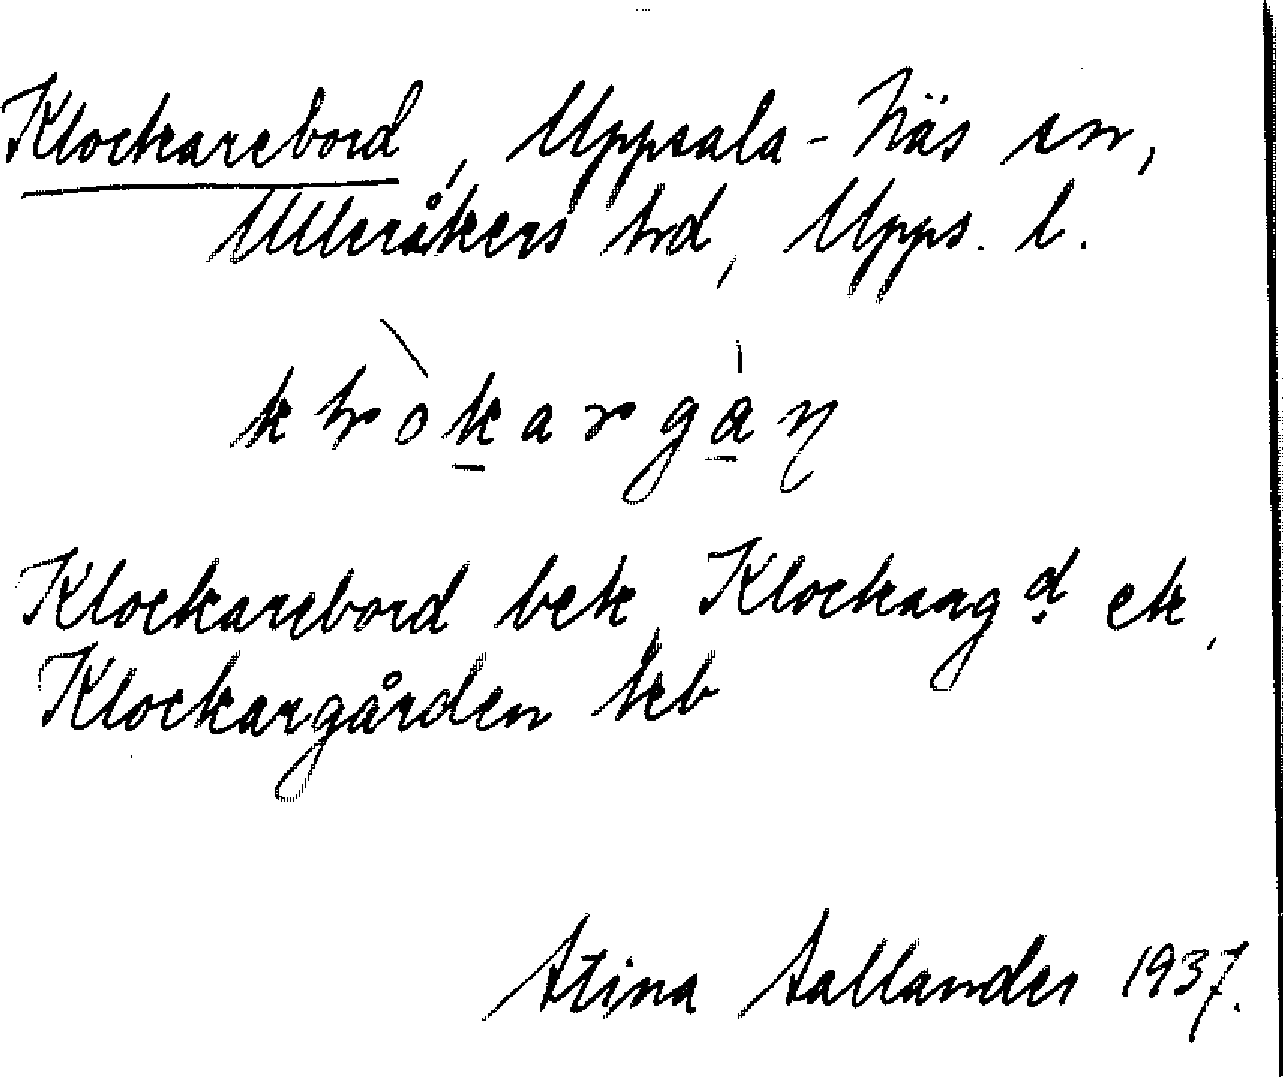 Klockarebord, Uppsala-Näs sn,
Ulleråkers hd, Upps. l.
Klockarebord bek, Klockarg d ek,
Klockargården hkb
Stina Sallander 1937.